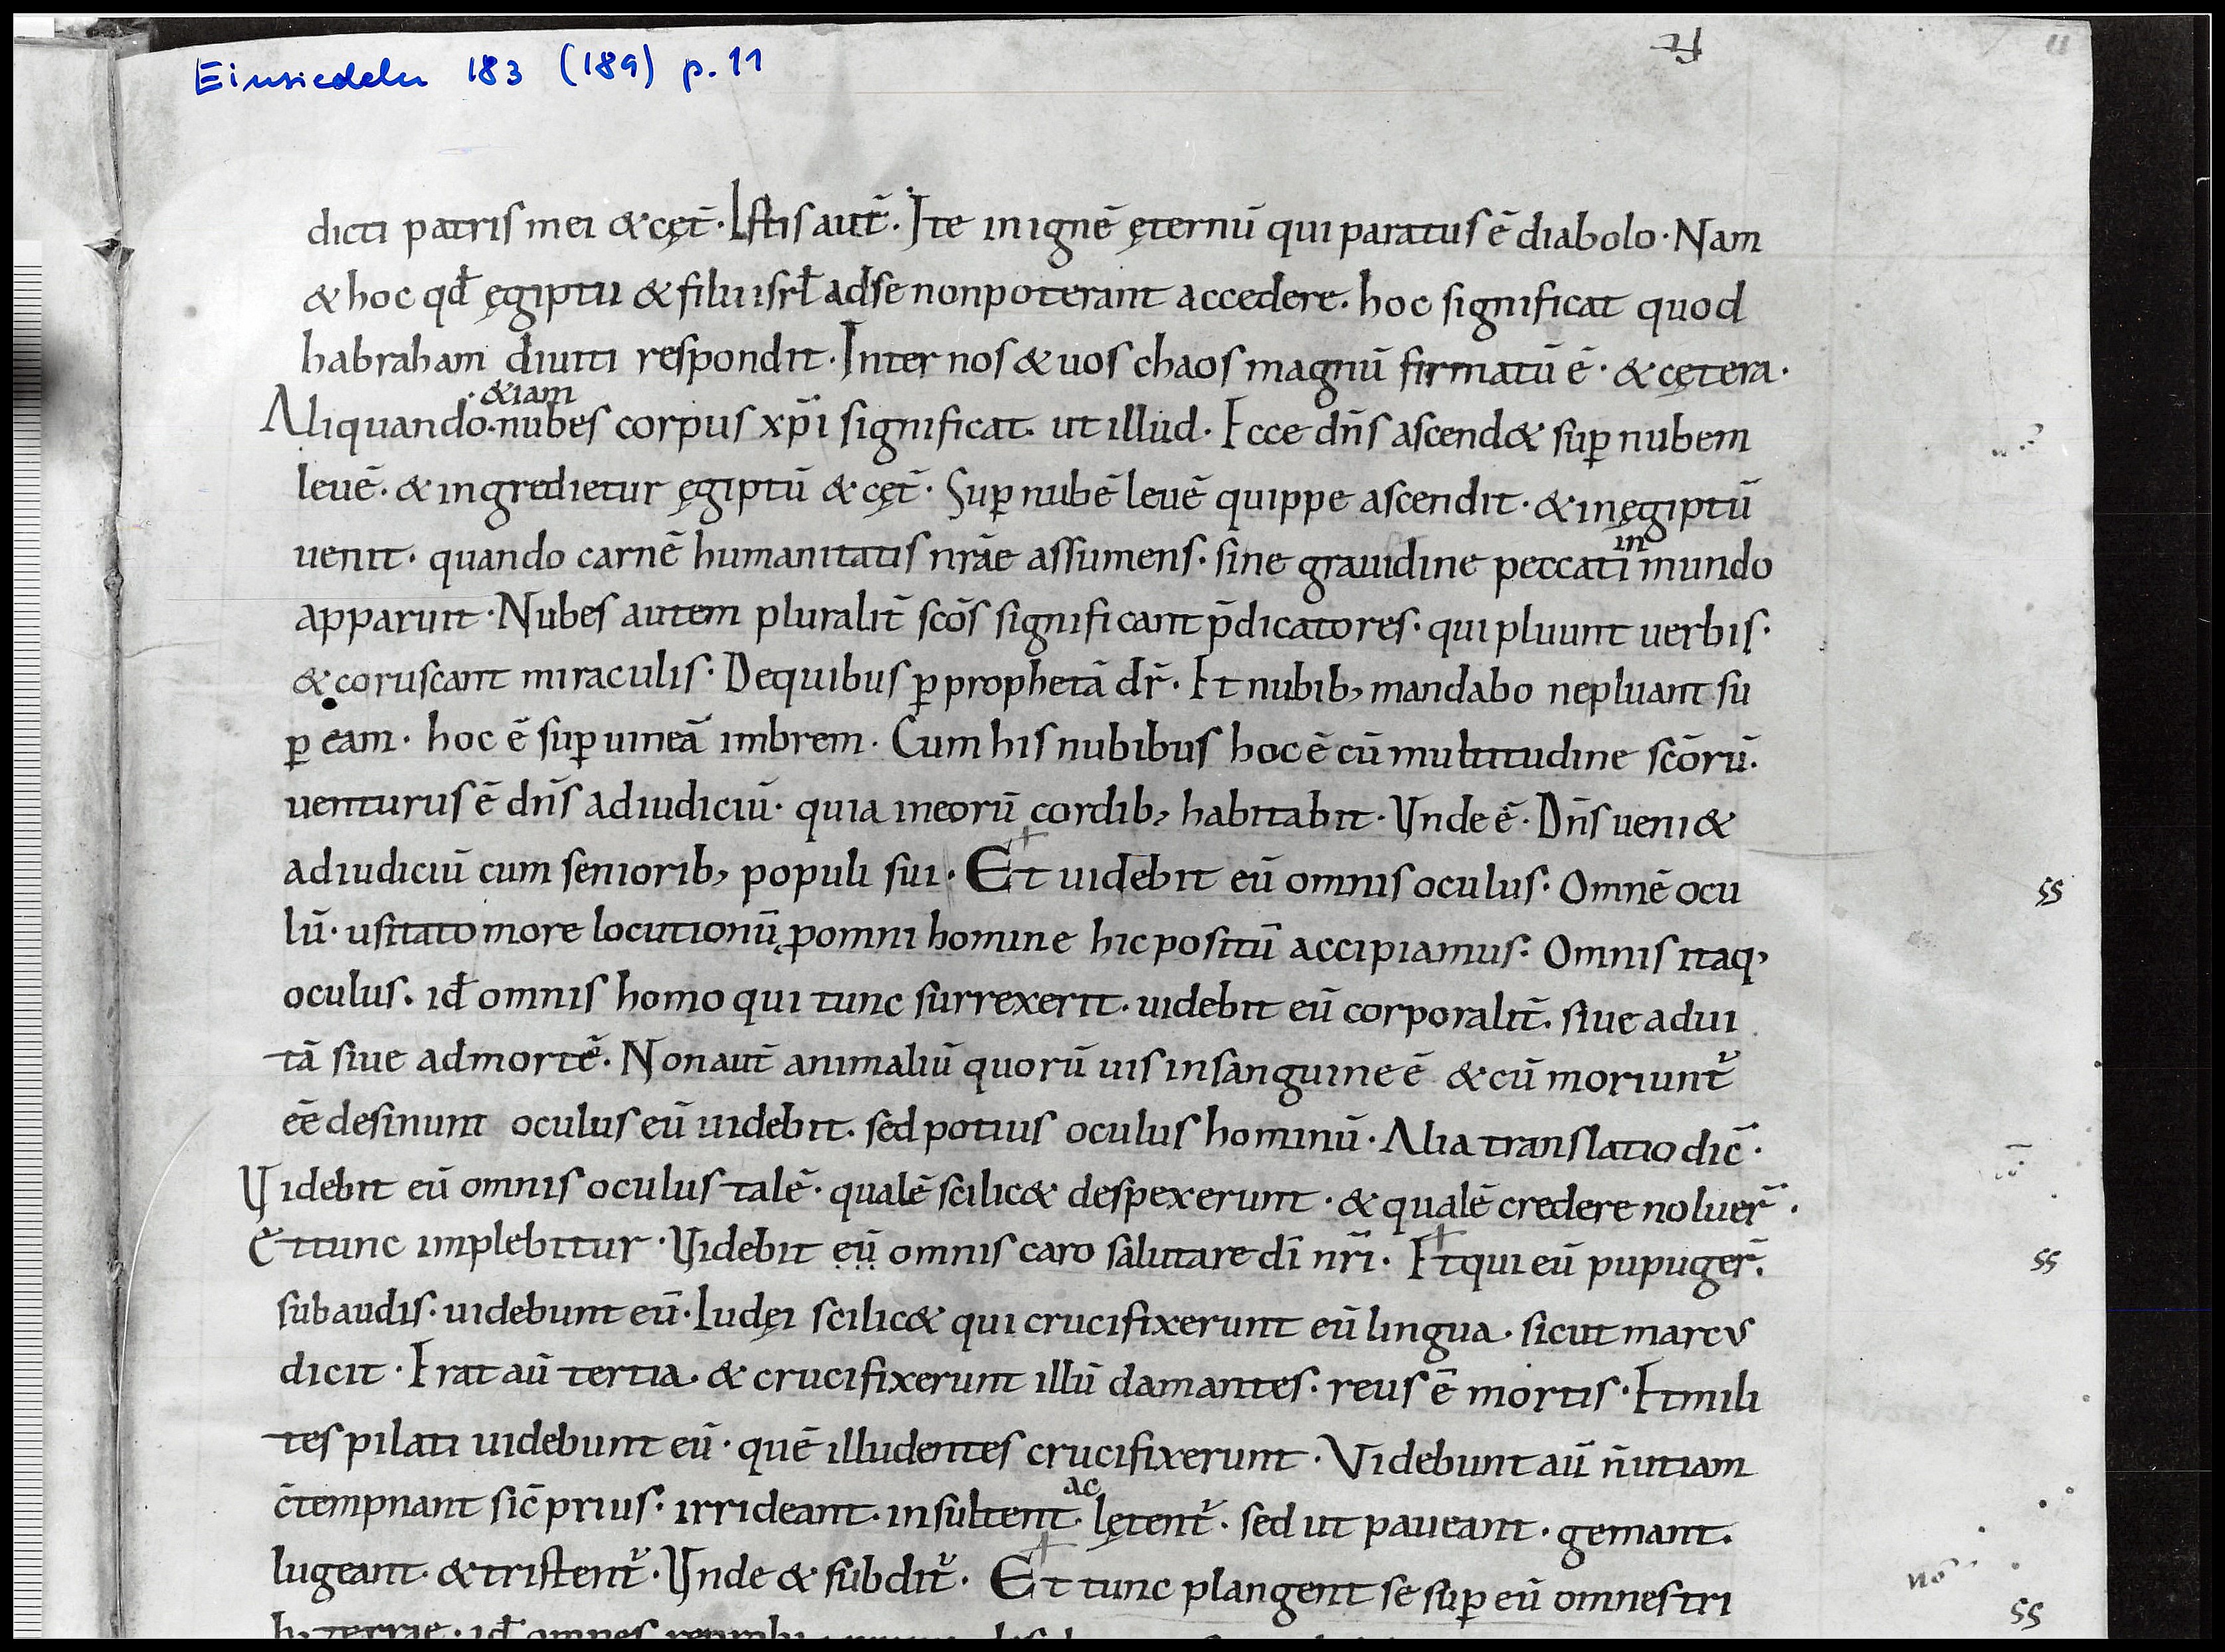 Einsiedeln 183 (189) p. 11
dicti patris mei & cęt̄· Istis aut̄· Ite in ignē ęternū qui paratus ē diabolo· Nam
& hoc qđ ęgiptii & filii isrł ad se non poterant accedere· hoc significat quod
habraham diuiti respondit· Inter nos & uos chaos magnū firmatū ē· & cętera·
·&iam
Aliquando· nubes corpus xp̄i significat· ut illud· Ecce dn̄s ascend& suꝑ nubem
leuē· & ingredietur ęgiptū & cęt̄· Suꝑ nubē leuē quippe ascendit· & in ęgiptū
uenit· quando carnē humanitatis nr̄ae assumens· sine grauidine peccati mundo
in
apparuit· Nubes autem pluralit̄ sc̄os significant p̄dicatores· qui pluunt uerbis·
& coruscant miraculis· De quibus ꝑ prophetā dr̄· Et nubib; mandabo ne pluant su
ꝑ eam· hoc ē suꝑ uineā imbrem· Cum his nubibus hoc ē cū multitudine sc̄orū·
uenturus ē dn̄s ad iudiciū· quia in eorū cordib; habitabit· Unde ē· Dn̄s ueni&
ad iudiciū cumseniorib; populi sui· Et uidebit eū omnis oculus· Omnē ocu
lū· usitato more locutionū ꝓ omni homine hic positū accipiamus· Omnis itaq;
oculus· id̄ omnis homo qui tunc surrexerit· uidebit eū corporalit̄· siue ad ui
tā siue ad mortē· Non aut̄ animaliū quorū uis in sanguine ē & cū moriunt᷑
ēe desinunt oculus eū uidebit· sed potius oculus hominū· Alia translatio dic̄·
Uidebit eū omnis oculus talē· qualē scilic& despexerunt· & qualē credere noluer̄·
Et tunc implebitur· Uidebit eū omnis caro salutare dī nr̄i· Et qui eū pupuger̄·
subaudis· uidebunt eū· Iudęi scilic& qui crucifixerunt eū lingua· sicut marcus
dicit· Erat aū tertia· & crucifixerunt illū clamantes· reus ē mortis· Et mili
tes pilati uidebunt eū· quē illudentes crucifixerunt· Videbunt aū n̄ ut iam
c̄tempnant sic̄ prius· irrideant· insultent· lętent᷑· sed ut paueant· gemant·
ac
lugeant· & tristent᷑· Unde & subdit᷑· Et tunc plangent se suꝑ eū omnes tri
ss
ss
ss